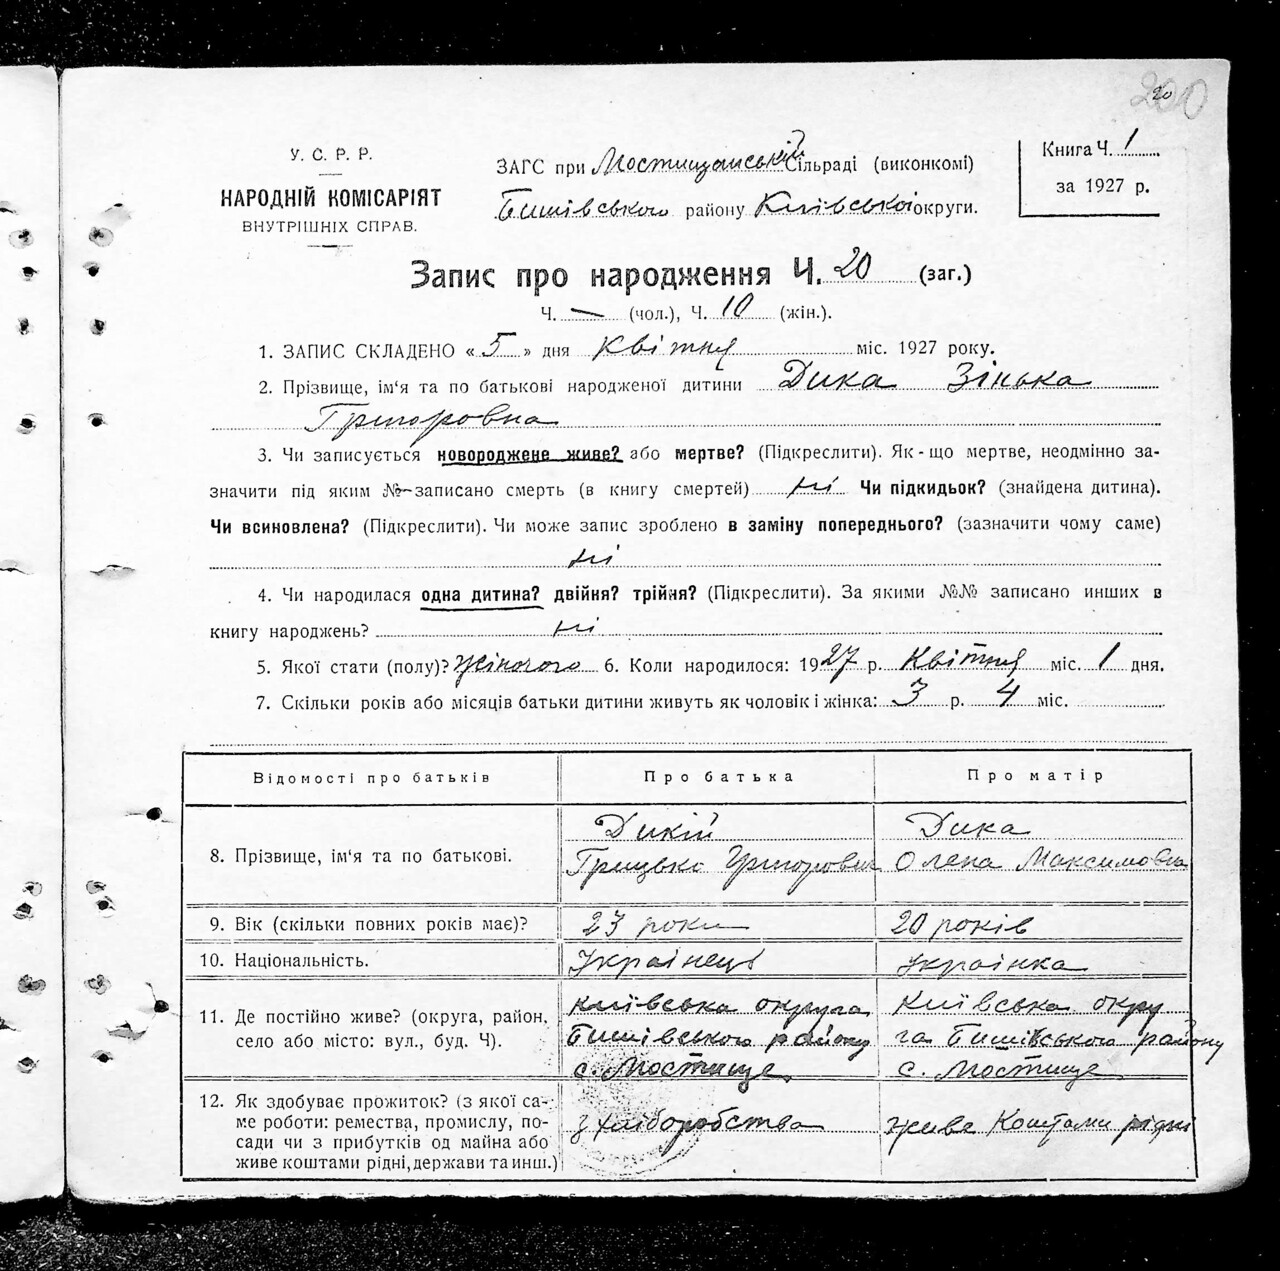 200
20
У. С. Р. Р.
НАРОДНІЙ КОМІСАРІЯТ
ВНУТРІШНІХ СПРАВ.
ЗАГС при Мостищанській Сільраді (виконкомі)
Бишівського району Київської округи.
Книга Ч. 1
за 1927 р.
Запис про народження Ч. 20 (заг.)
Ч. — (чол.), Ч. 10 (жін.).
1. ЗАПИС СКЛАДЕНО « 5 » дня квітня міс. 1927 року.
2. Прізвище, ім'я та по батькові народженої дитини Дика Зінька
Григоровна
3. Чи записується новороджене живе? або мертве? (Підкреслити). Як-що мертве, неодмінно за-
значити під яким № записано смерть (в книгу смертей) ні Чи підкидьок? (знайдена дитина).
Чи всиновлена? (Підкреслити). Чи може запис зроблено в заміну попереднього? (зазначити чому саме)
ні
4. Чи народилася одна дитина? двійня? трійня? (Підкреслити). За якими №№ записано инших в
книгу народжень? ні
5. Якої стати (полу)? Жіночого 6. Коли народилося: 1927 р. Квітня міс. 1 дня.
7. Скільки років або місяців батьки дитини живуть як чоловік і жінка: 3 р. 4 міс.
Відомості про батьків Про батька Про матір
8. Прізвище, ім'я та по батькові. Дикій Грицько Григорович Дика Олена Максимовна
9. Вік (скільки повних років має)? 23 роки 20 років
10. Національність. Українець Українка
11. Де постійно живе? (округа, район, село або місто: вул., буд. Ч). Київська округа Бишівського району с. Мостище Київська округа Бишівського району с. Мостище
12. Як здобуває прожиток? (з якої са-
ме роботи: ремества, промислу, по-
сади чи з прибутків од майна або
живе коштами рідні, держави та инш.) з хліборобства живе Коштами рідні